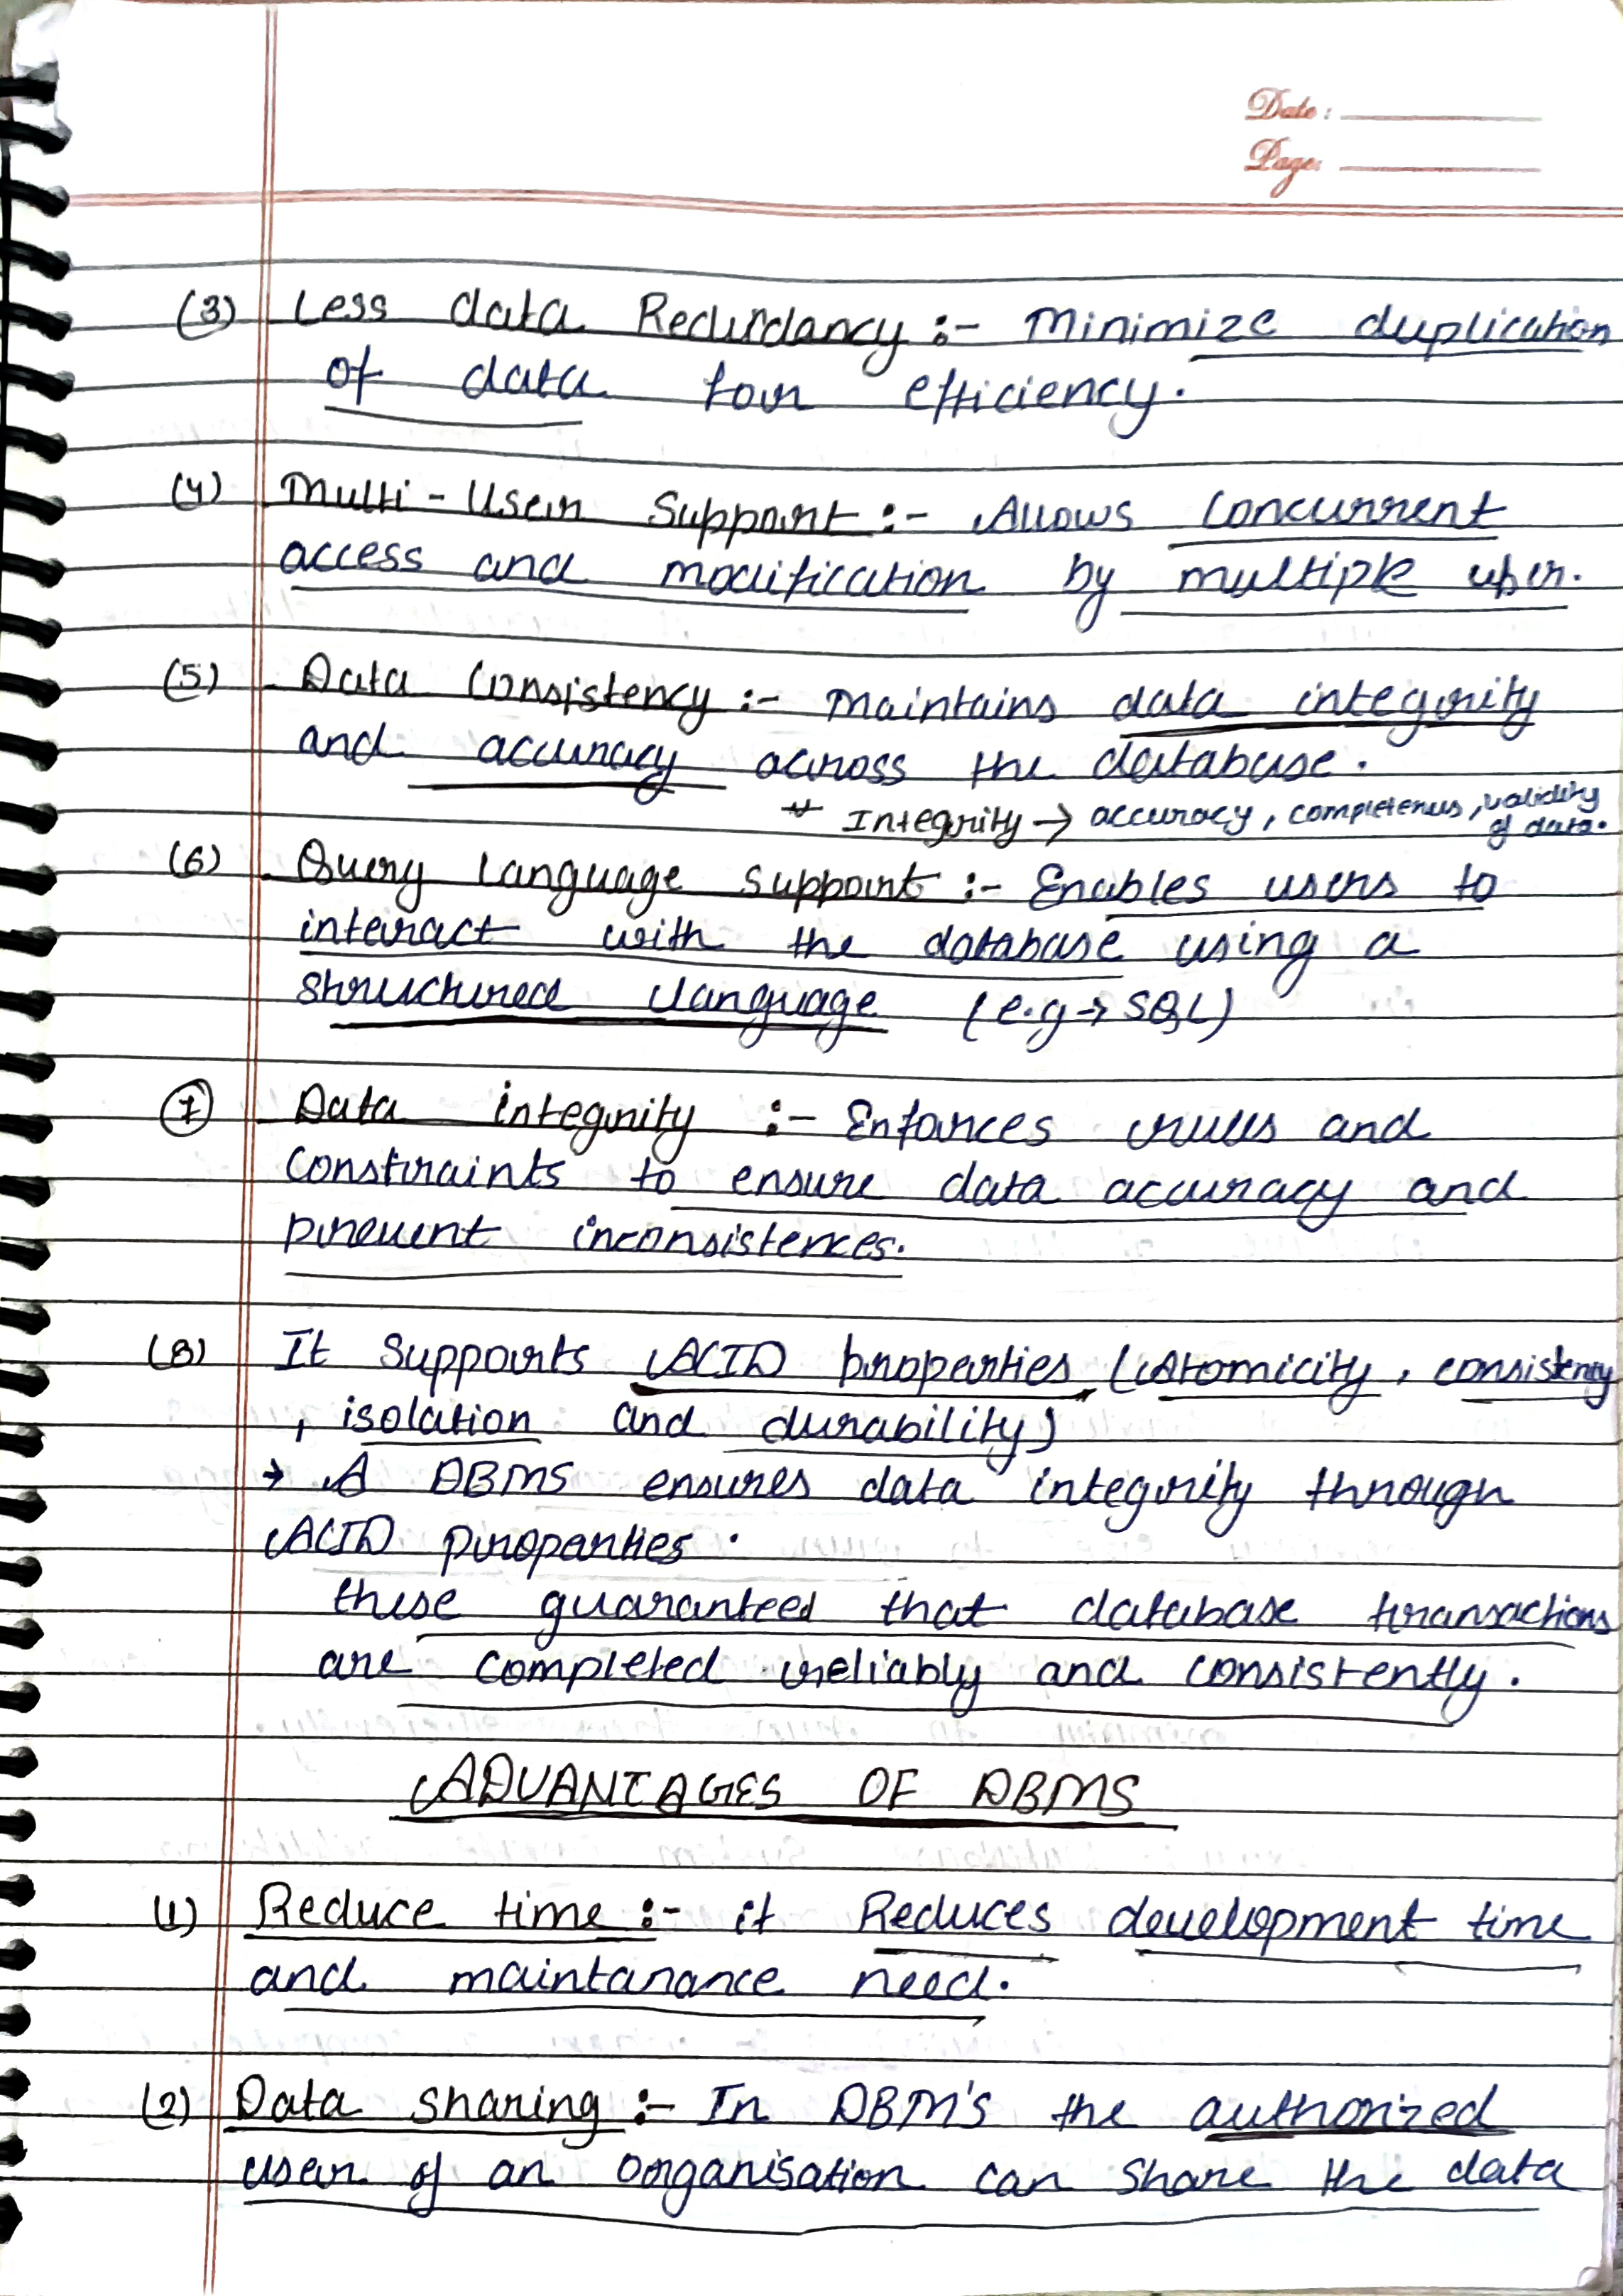 Date :
Page:
(3) Less data Redundancy :- Minimize duplication
of data for efficiency.
(4) Multi - User Support :- Allows concurrent
access and modification by multiple user.
(5) Data Consistency :- Maintains data integrity
and accuracy across the database.
* Integrity → accuracy, completeness, validity
of data.
(6) Query Language support :- Enables users to
interact with the database using a
structured language (e.g → SQL)
(7) Data integrity :- Enforces rules and
constraints to ensure data accuracy and
prevent inconsistences.
(8) It supports ACID properties (Atomicity, consistency
, isolation and durability)
→ A DBMS ensures data integrity through
ACID properties.
these guaranteed that database transactions
are completed reliably and consistently.
ADVANTAGES OF DBMS
(1) Reduce time :- it Reduces development time
and maintanance need.
(2) Data sharing :- In DBM's the authorized
user of an organisation can share the data